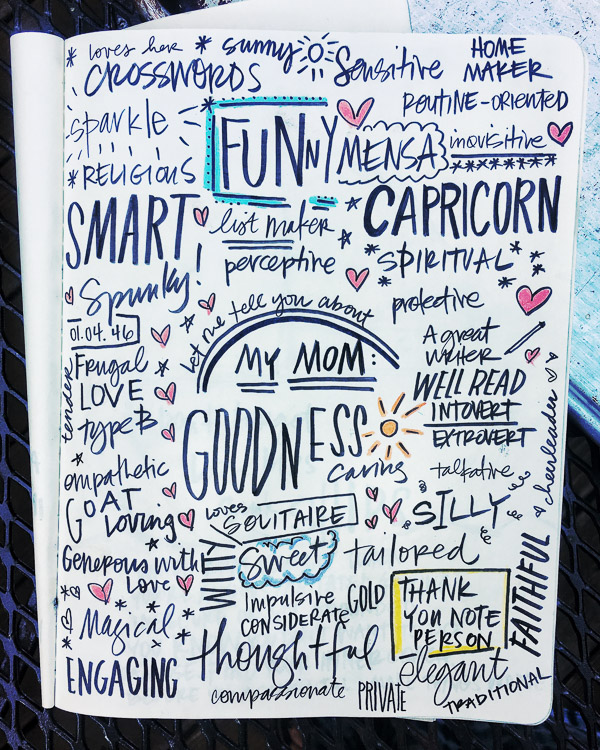 loves her
CROSSWORDS
sunny
Sensitive
HOME
MAKER
ROUTINE-ORIENTED
sparkle
FUNNY
MENSA
inquisitive
RELIGIOUS
SMART
list maker
CAPRICORN
perceptive
SPIRITUAL
Spunky!
protective
01.04.46
let me tell you about
MY MOM:
A great
writer
Frugal
tender
LOVE
type B
GOODNESS
WELL READ
INTOVERT
EXTROVERT
cheerleader
caring
talkative
empathetic
GOAT
loving
loves
SOLITAIRE
SILLY
Generous with
Love
WITTY
sweet
tailored
FAITHFUL
Impulsive
CONSIDERATE
GOLD
THANK
YOU NOTE
PERSON
Magical
thoughtful
elegant
ENGAGING
compassionate
PRIVATE
TRADITIONAL